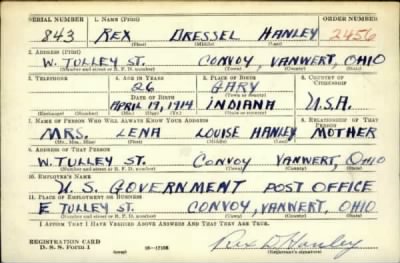 SERIAL NUMBER 1. NAME (Print) ORDER NUMBER
843 REX DRESSEL HANLEY 2456
(First) (Middle) (Last)
2. ADDRESS (Print)
W. TULLEY ST. CONVOY, VANWERT, OHIO
(Number and street or R. F. D. number) (Town) (County) (State)
3. TELEPHONE 4. AGE IN YEARS 5. PLACE OF BIRTH 6. COUNTRY OF CITIZENSHIP
26 GARY
(Town or county)
DATE OF BIRTH
APRIL 19, 1914 INDIANA U.S.A.
(Exchange) (No.) (Mo.) (Day) (Yr.) (State or country)
7. NAME OF PERSON WHO WILL ALWAYS KNOW YOUR ADDRESS 8. RELATIONSHIP OF THAT PERSON
MRS. LENA LOUISE HANLEY MOTHER
(Mr., Mrs., Miss) (First) (Middle) (Last)
9. ADDRESS OF THAT PERSON
W. TULLEY ST. CONVOY VANWERT, OHIO
(Number and street or R. F. D. number) (Town) (County) (State)
10. EMPLOYER'S NAME
U. S. GOVERNMENT POST OFFICE
11. PLACE OF EMPLOYMENT OR BUSINESS
E TULLEY ST. CONVOY, VANWERT, OHIO
(Number and street or R. F. D. number) (Town) (County) (State)
I AFFIRM THAT I HAVE VERIFIED ABOVE ANSWERS AND THAT THEY ARE TRUE.
REGISTRATION CARD
D. S. S. Form 1 (over) 16—17105 Rex D. Hanley
(Registrant's signature)